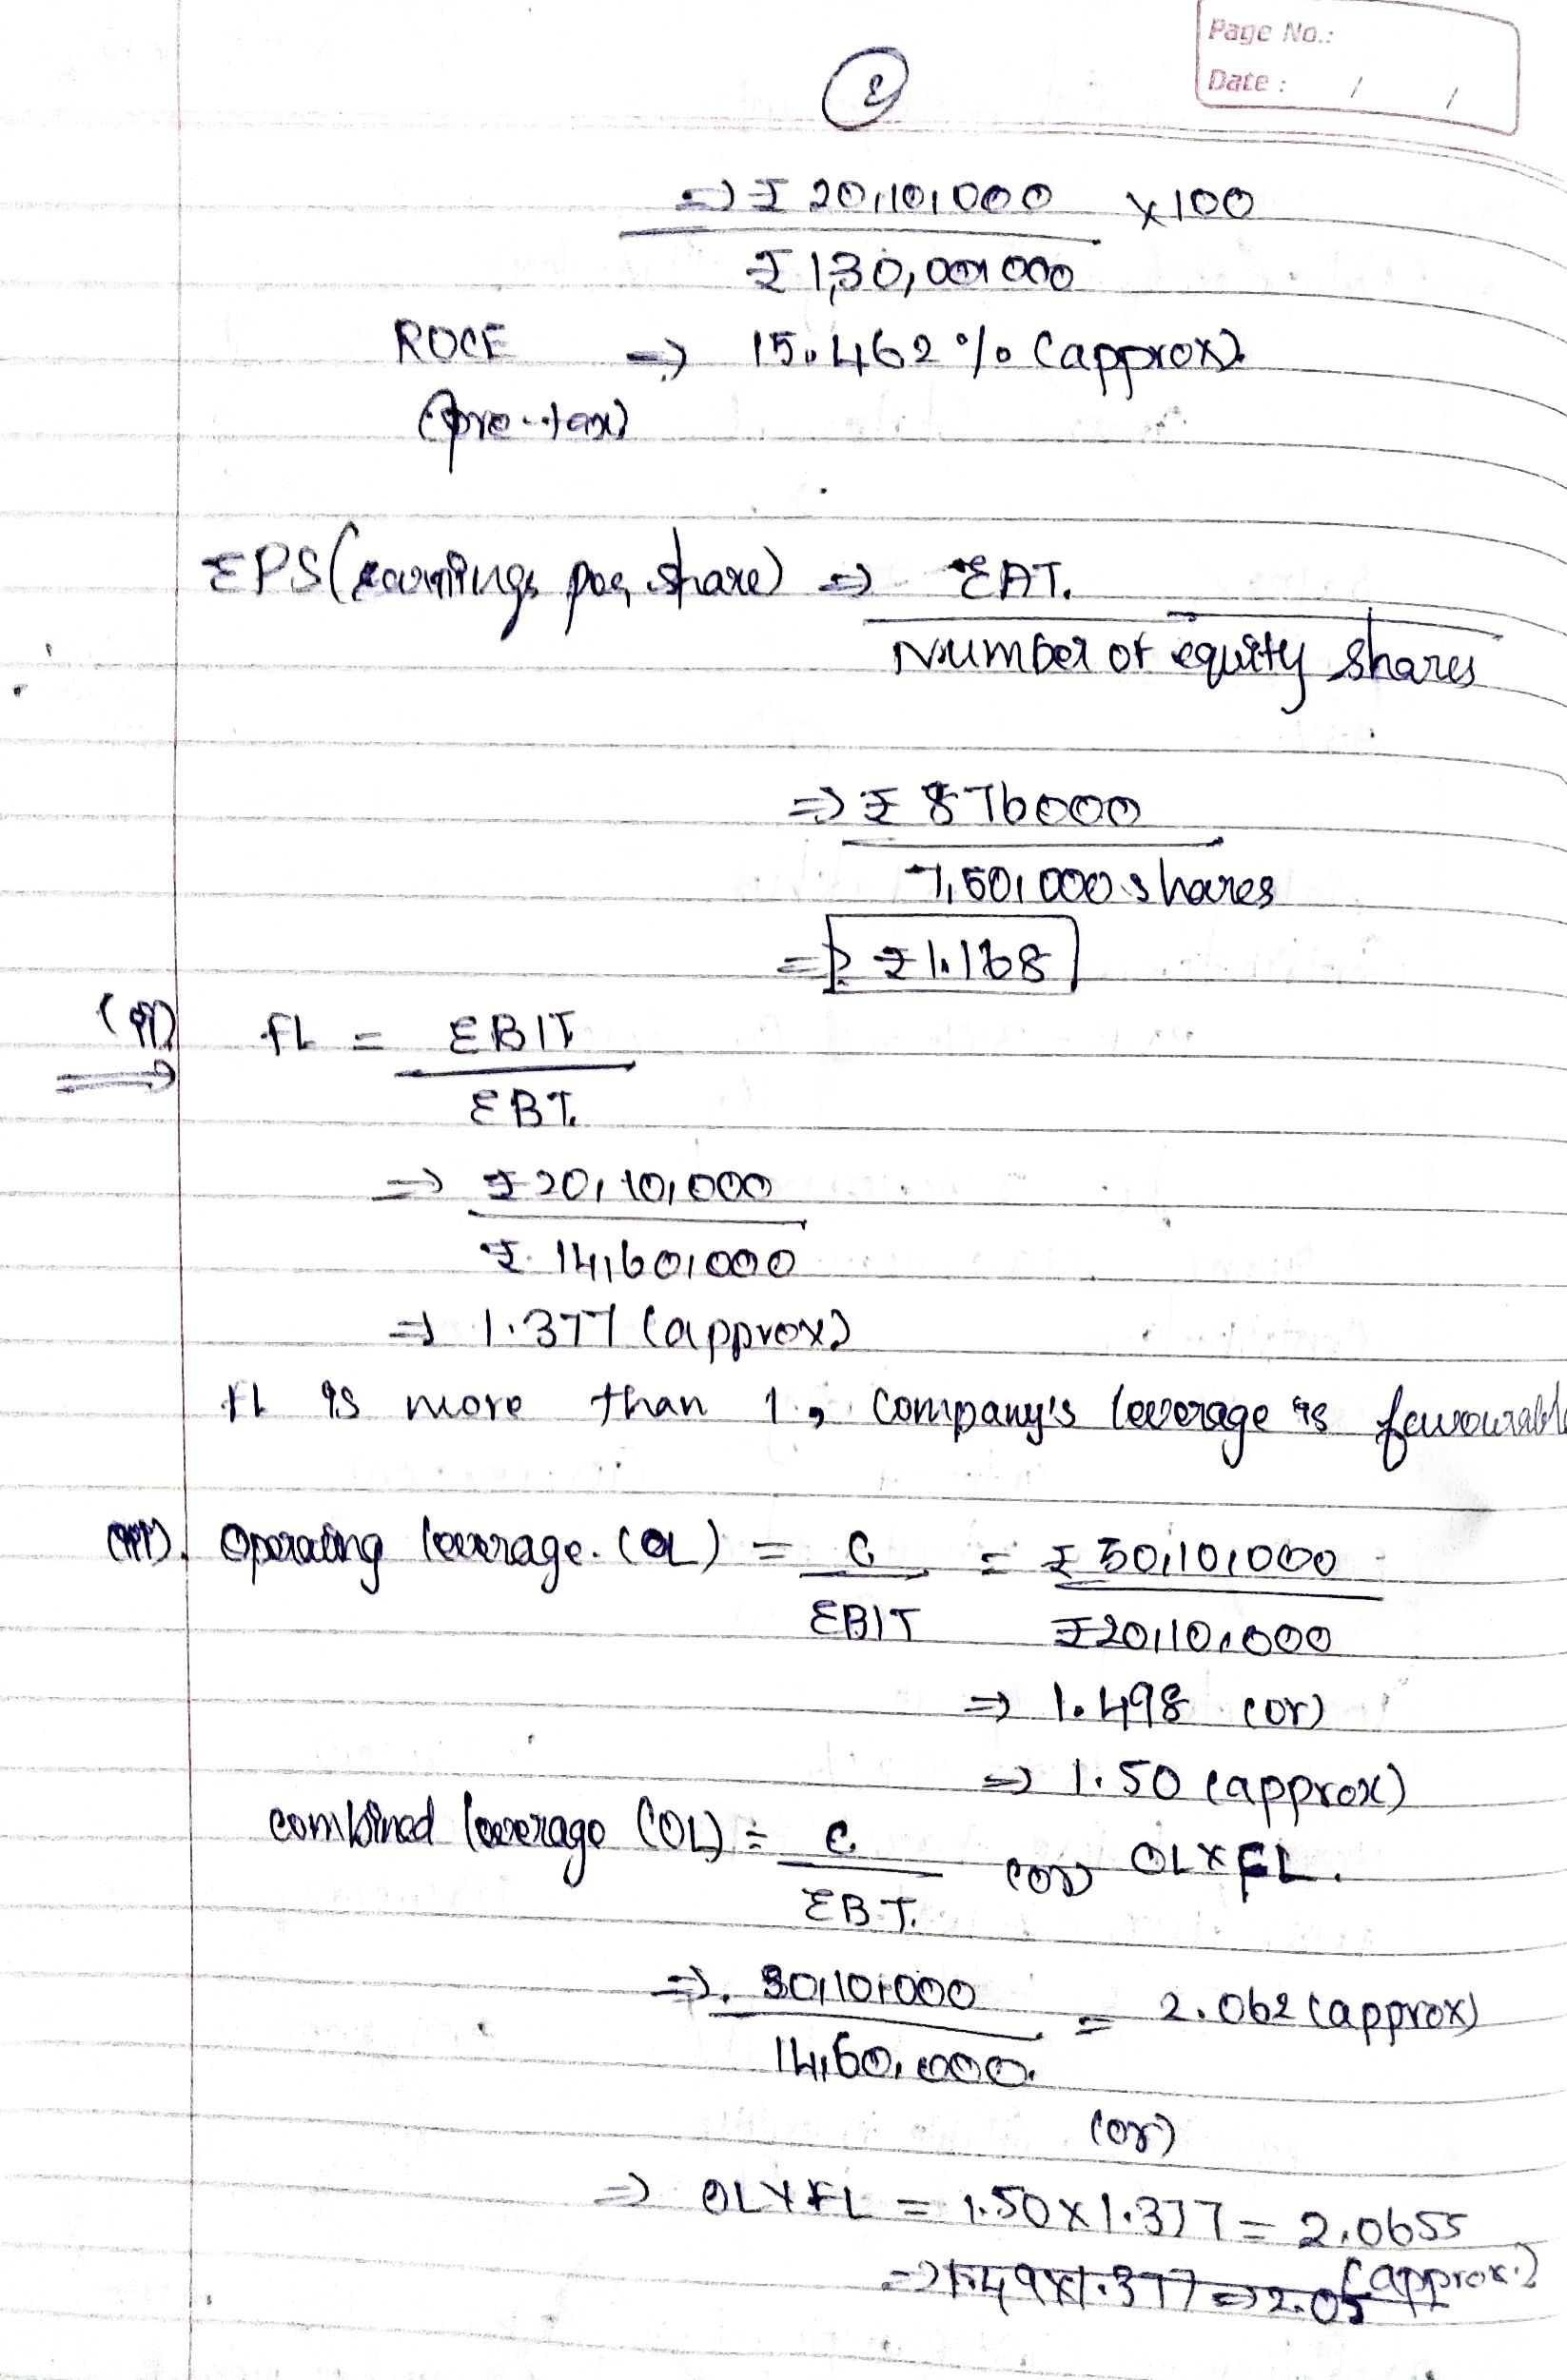 Page No.:
Date : / /
2
=> ₹ 20,10,000 x100
₹ 1,30,00,000
ROCE => 15.462 % (approx).
(pre-tax)
EPS (earnings per share) => EAT.
Number of equity shares
=> ₹ 876000
7,50,000 shares
=> ₹1.168
(ii) FL = EBIT
EBT.
=> ₹ 20,10,000
₹. 14,60,000
=> 1.377 (approx)
FL is more than 1, company's leverage is favourable
(iii). Operating leverage. (OL) = C = ₹ 30,10,000
EBIT ₹20,10,000
=> 1.498 (or)
=> 1.50 (approx)
combined leverage (OL) = C. (or) OL x FL.
EBT.
=>. 30,10,000 = 2.062 (approx)
14,60,000.
(or)
=> OL x FL = 1.50 x 1.377 = 2.0655
(approx.)
=> 1.49 x 1.377 => 2.05